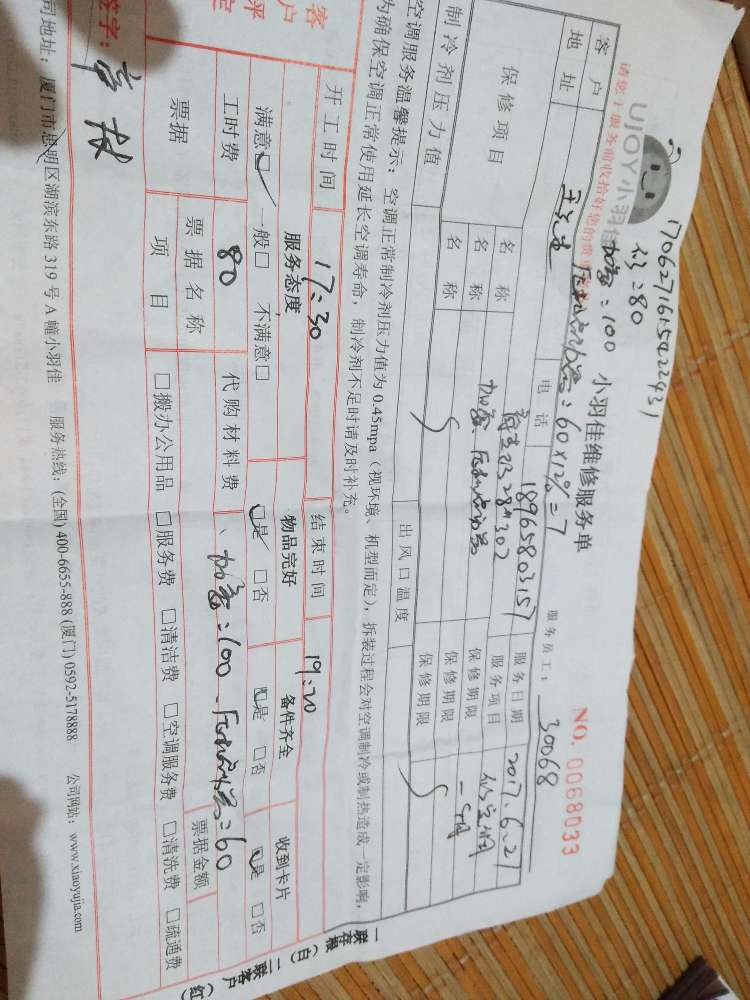 1706271615422431
UJOY小羽佳
加氨:100
修:80
请您于服务前收拾好您的贵重
:60×12%=7
小羽佳维修服务单
服务员工: 30068
NO. 0068033
客户
王先生
电话
18965803157
服务日期
2017.6.27
地址
服务项目
修空调
保修项目
名称
加氨
保修期限
名称
保修期限
名称
保修期限
制冷剂压力值
出风口温度
空调服务温馨提示:空调正常制冷剂压力值为0.45mpa(视环境、机型而定),拆装过程会对空调制冷或制热造成一定影响,
为确保空调正常使用延长空调寿命,制冷剂不足时请及时补充。
开工时间
17:30
结束时间
19:20
客户评定
服务态度
物品完好
备件齐全
收到卡片
满意□ 一般□ 不满意□
□是 □否
□是 □否
□是 □否
工时费
80
代购材料费
加氨:100
=60
票据
票据名称
票据金额
项目
□搬办公用品 □服务费 □清洁费 □空调服务费 □清洗费 □疏通费
签字:
司地址:厦门市思明区湖滨东路319号A幢小羽佳 服务热线:(全国)400-6655-888(厦门)0592-5178888 公司网站:www.xiaoyujia.com
一联存根(白)二联客户(红)